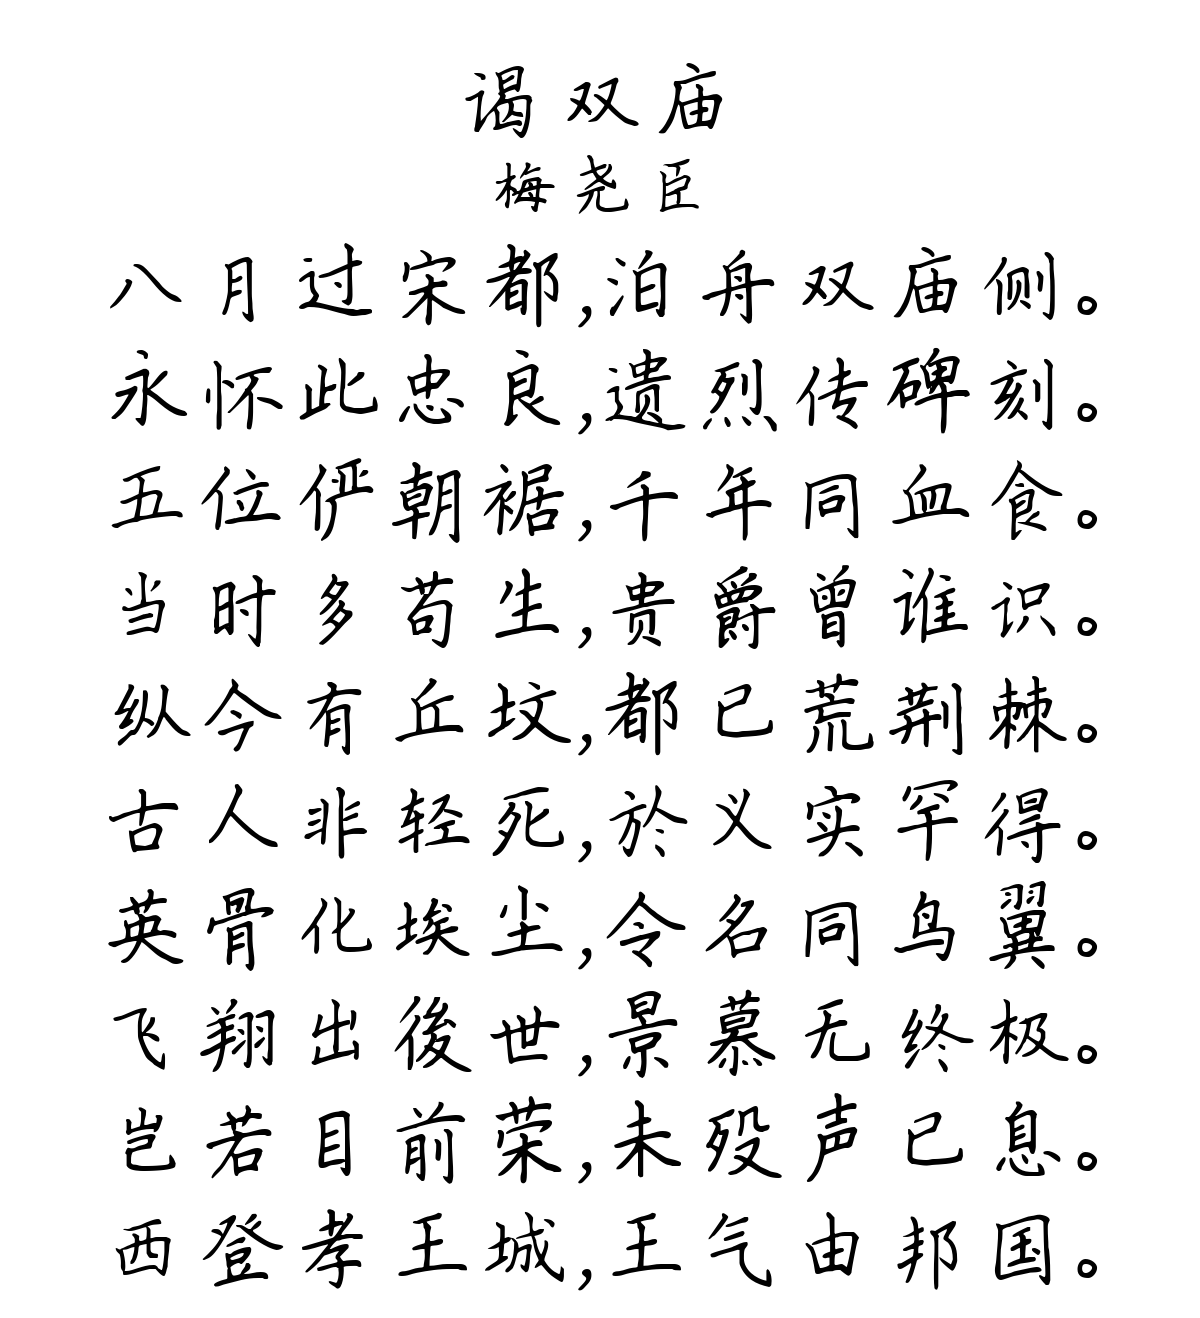 谒双庙
梅尧臣
八月过宋都,泊舟双庙侧。
永怀此忠良,遗烈传碑刻。
五位俨朝裾,千年同血食。
当时多苟生,贵爵曾谁识。
纵今有丘坟,都已荒荆棘。
古人非轻死,於义实罕得。
英骨化埃尘,令名同鸟翼。
飞翔出後世,景慕无终极。
岂若目前荣,未殁声已息。
西登孝王城,王气由邦国。